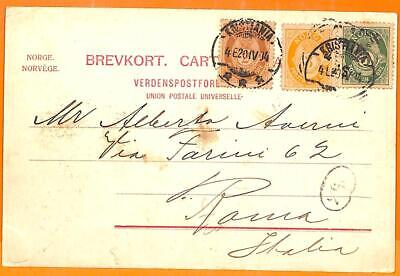 NORGE.
NORVÈGE.
BREVKORT. CAR
VERDENSPOSTFORE
UNION POSTALE UNIVERSELLE.
KRISTIANIA
4 E 20 IV 04
KRISTIANIA
Mr Alberto Averni
Via Farini 62
Roma
Italia